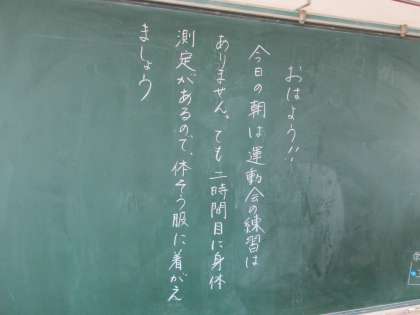 おはよう!!
今日の朝は運動会の練習は
ありません。でも二時間目に身体
測定があるので、体そう服に着がえ
ましょう